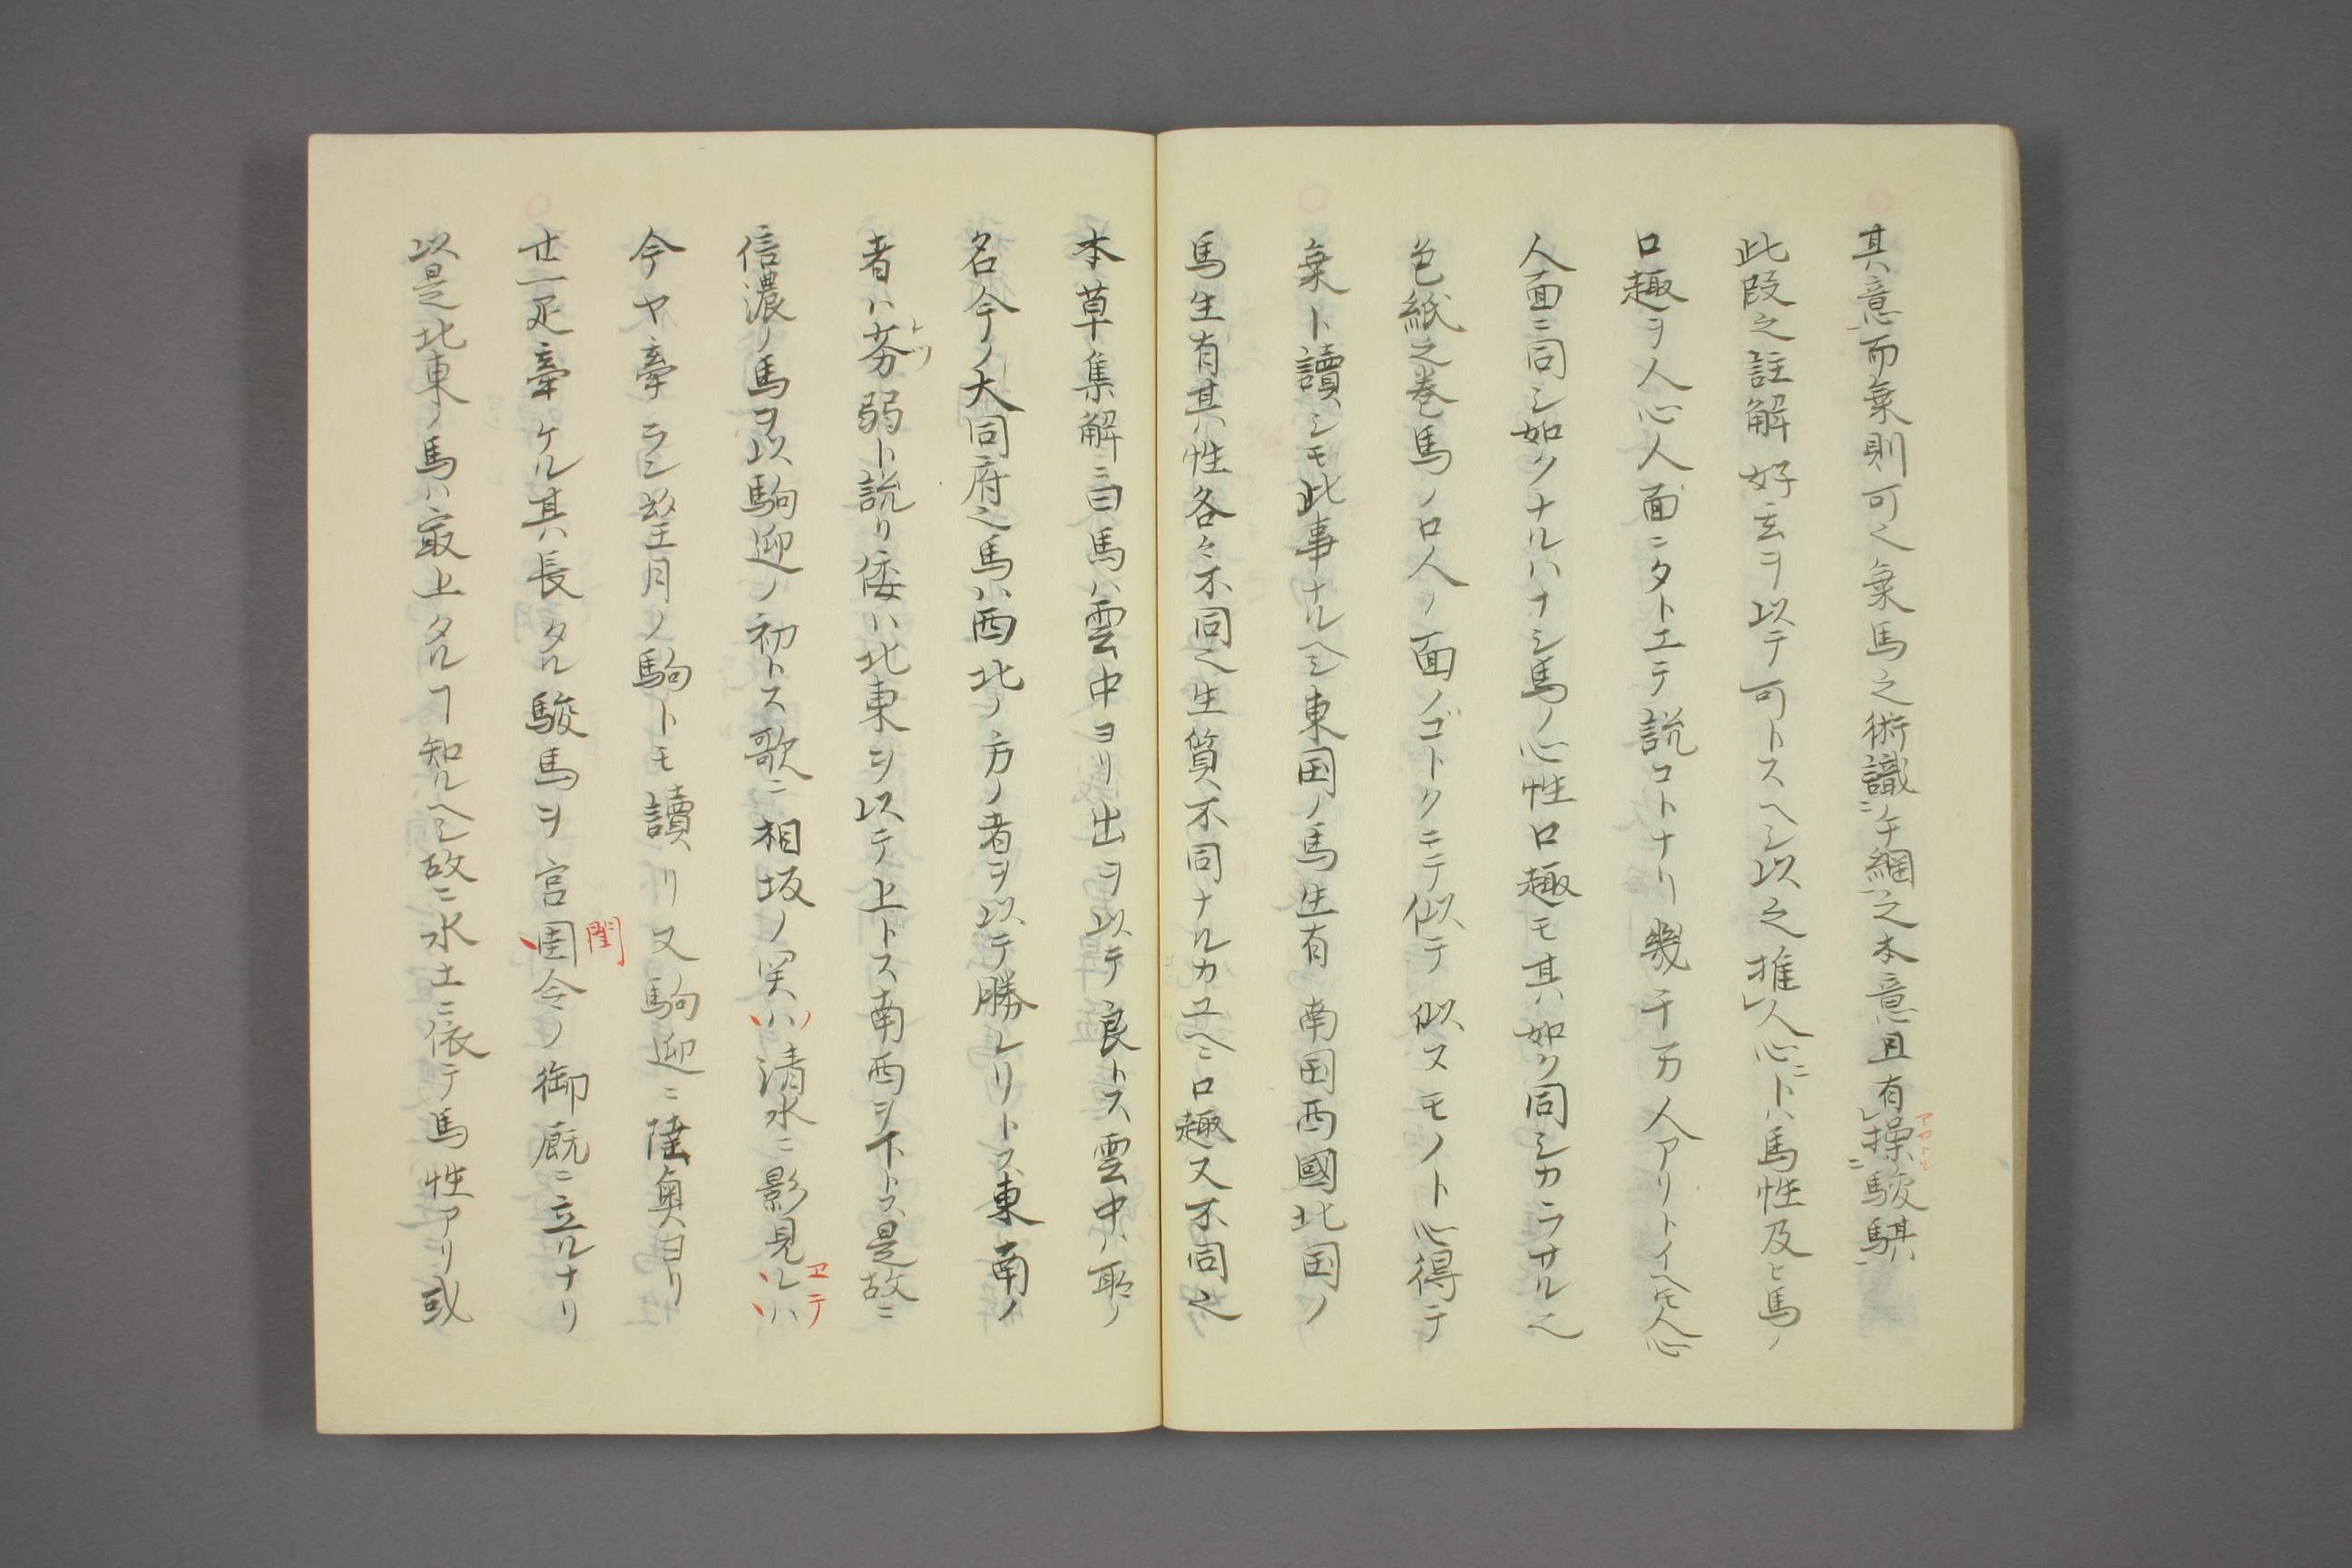 其意而乗則可之乗馬之術識ニ午綱之本意且有操駿騏
此段之註解好玄ヲ以テ可トスヘシ以之推人心ニトハ馬性及ヒ馬ノ
口趣ヲ人心人面ニタトエテ説コトナリ幾千万人アリトイヘ𪜈人心
人面ニ同シ如クナルハナシ馬ノ心性口趣モ其如ク同シカラサル之
色紙之巻馬ノ口人ノ面ノゴトクニテ似テ似ヌモノト心得テ
乗ト讀シモ此事ナルヘシ東国ノ馬生有南国西國北国ノ
馬生有其性各々不同之生質不同ナルカユヘニ口趣又不同之
本草集解ニ曰馬ハ雲中ヨリ出ヲ以テ良トス雲中ハ郡ノ
名今ノ大同府之馬ハ西北ノ方ノ者ヲ以テ勝レリトス東南ノ
者ハ劣弱ト説リ倭ハ北東ヲ以テ上トス南西ヲ下トス是故ニ
信濃ノ馬ヲ以駒迎ノ初トス歌ニ相坂ノ関ハ清水ニ影見レハ
今ヤ牽ラン望月ノ駒トモ讀リ又駒迎ニ陸奥ヨリ
廿一疋牽ケル其長タル駿馬ヲ宮圉令ノ御厩ニ立ルナリ
以是北東ノ馬ハ最上タルヿ知ルヘシ故ニ水土ニ依テ馬性アリ或